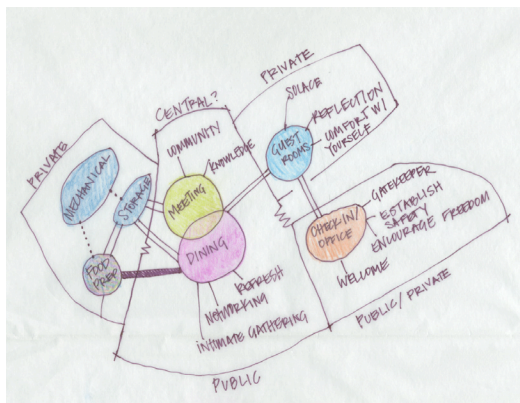 PRIVATE
MECHANICAL
STORAGE
FOOD
PREP
CENTRAL?
COMMUNITY
KNOWLEDGE
MEETING
DINING
REFRESH
NETWORKING
INTIMATE GATHERING
PUBLIC
PRIVATE
SOLACE
REFLECTION
COMFORT W/
YOURSELF
GUEST
ROOMS
CHECK-IN/
OFFICE
GATEKEEPER
ESTABLISH
SAFETY
ENCOURAGE FREEDOM
WELCOME
PUBLIC/PRIVATE